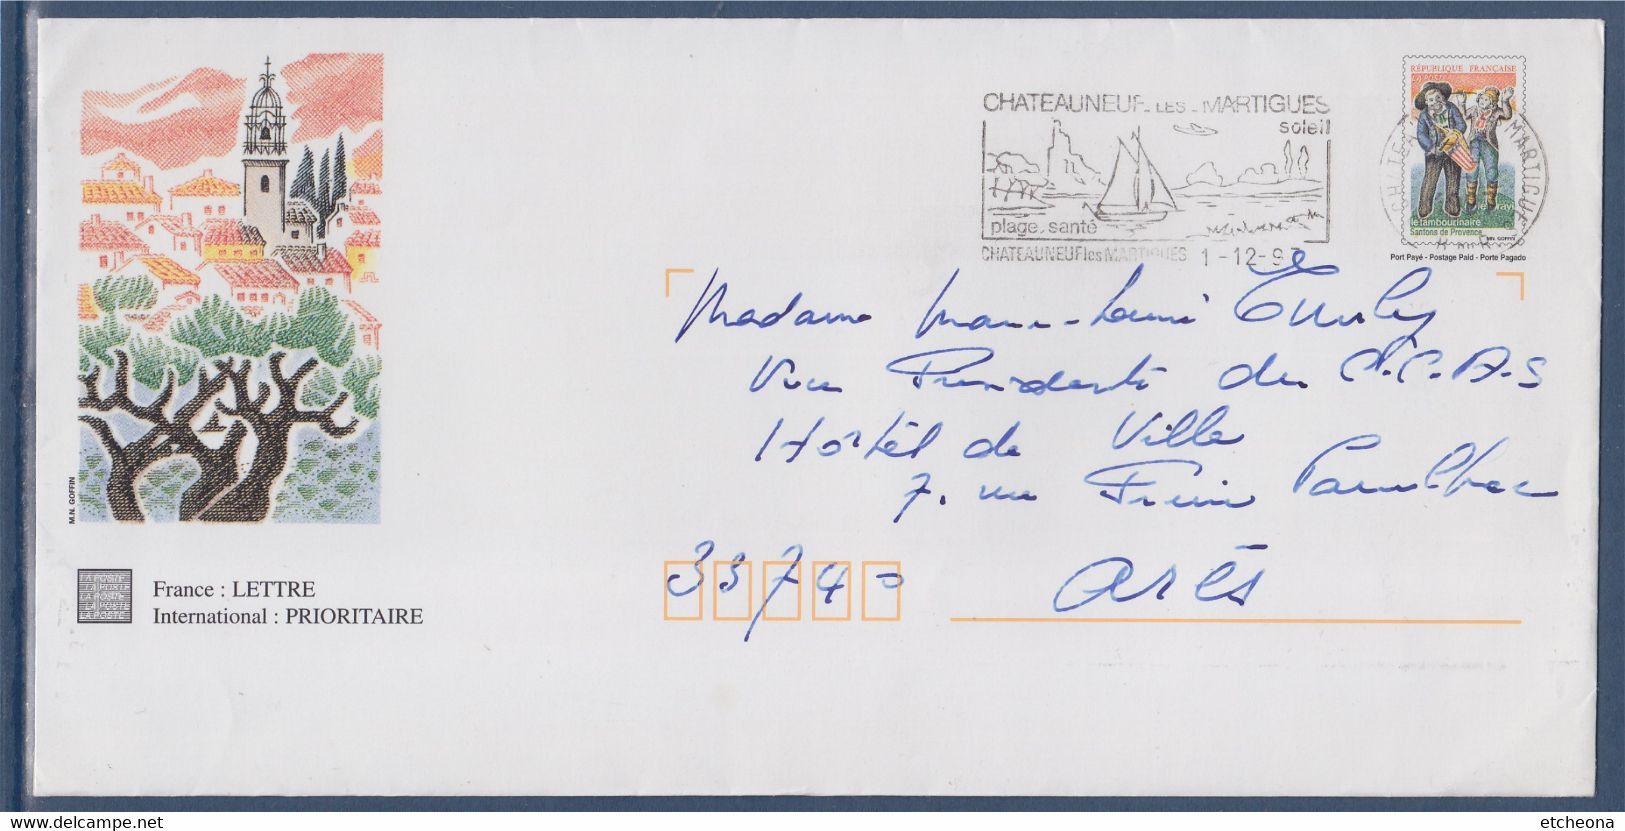 CHATEAUNEUF-LES-MARTIGUES
soleil
plage. santé
CHATEAUNEUF les MARTIGUES 1-12-97
RÉPUBLIQUE FRANÇAISE
LA POSTE
le tambourinaire
Santons de Provence
MN. GOFFIN
MARTIGUES
Port Payé - Postage Paid - Porte Pagado
M.N. GOFFIN
Madame Marie-Louise
Vice Présidente du C.C.A.S
Hôtel de Ville
7. rue
33740 Arès
LA POSTE
LA POSTE
LA POSTE
LA POSTE
LA POSTE
France : LETTRE
International : PRIORITAIRE
www.delcampe.net
etcheona